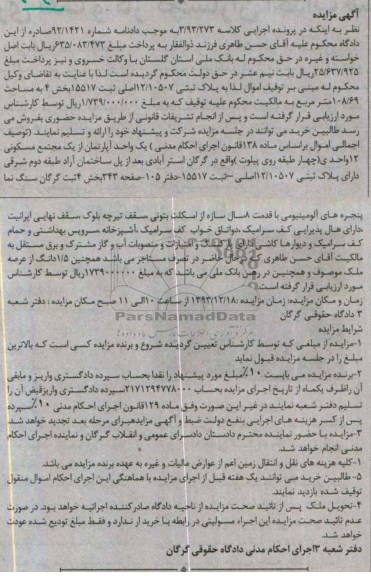 آگهی مزایده
نظر به اینکه در پرونده اجرایی کلاسه ۳/۹۳/۲۷۳به موجب دادنامه شماره ۹۲/۱۴۲۱صادره از این
دادگاه محکوم علیه آقای حسن طاهری فرزند ذوالفقار به پرداخت مبلغ ۶۳۵/۰۸۳/۴۷۳ریال بابت اصل
خواسته و غیره در حق محکوم له بانک ملی استان گلستان با وکالت خسروی و نیز پرداخت مبلغ
۲۵/۶۳۷/۹۲۵ریال بابت نیم عشر در حق دولت محکوم گردیده است لذا با عنایت به تقاضای وکیل
محکوم له مبنی بر توقیف اموال لذا به پلاک ثبتی ۱۲/۱۰۵۰۷اصلی ثبت ۱۵۵۱۷بخش ۴ به مساحت
۱۰۸/۶۹متر مربع به مالکیت محکوم علیه توقیف که به مبلغ ۱/۷۳۹/۰۰۰/۰۰۰ریال توسط کارشناس
مورد ارزیابی قرار گرفته است و پس از انجام تشریفات قانونی از طریق مزایده حضوری بفروش می
رسد طالبین خرید می توانند در جلسه مزایده شرکت و پیشنهاد خود را ارائه و تسلیم نمایند. (توصیف
اجمالی اموال براساس ماده ۱۳۸قانون اجرای احکام مدنی ) یک واحد آپارتمان از یک مجتمع مسکونی
۱۲واحدی(چهار طبقه روی پیلوت )واقع در گرگان استر آبادی بعد از پل ساختمان آراد طبقه دوم شرقی
دارای پلاک ثبتی ۱۲/۱۰۵۰۷اصلی -ثبت ۱۵۵۱۷-دفتر ۱۰۵-صفحه ۳۴۳بخش ۴ثبت گرگان سنگ نما
پنجره های آلومینیومی با قدمت ۸سال سازه از اسکلت بتونی سقف تیرچه بلوک سقف نهایی ایرانیت
دارای هال پذیرایی کف سرامیک دواتاق خواب کف سرامیک ،آشپزخانه سرویس بهداشتی و حمام
کف سرامیک و دیوارها کاشی دارای پارکینگ و امتیازات و منصوبات آب و گاز مشترک و برق مستقل به
مالکیت آقای حسن طاهری که در حال حاضر در تصرف مستاجر می باشد همچنین ۱/۵دانگ از عرصه
ملک موصوف و همچنین در رهن بانک ملی می باشد که به مبلغ ۱۷۳۹۰۰۰۰۰۰ریال توسط کارشناس
مورد ارزیابی قرار گرفته است.
زمان و مکان مزایده: زمان مزایده :۱۳۹۳/۱۲/۱۸ از ساعت ۱۰الی ۱۱ صبح مکان مزایده : دفتر شعبه
۳ دادگاه حقوقی گرگان
ParsNamadData
شرایط مزایده
۱-مزایده از مبلغی که توسط کارشناس تعیین گردیده شروع و برنده مزایده کسی است که بالاترین
مبلغ را در جلسه مزایده قبول نماید
۲-برنده مزایده می بایست ۱۰٪مبلغ مورد پیشنهاد را نقدا بحساب سپرده دادگستری واریز و مابقی
آن راظرف یکماه از تاریخ اجرای مزایده بحساب ۲۱۷۱۲۹۴۷۷۸۰۰۰سپرده دادگستری واریزقبض آن را
تسلیم دفتر شعبه نمایند در غیر این صورت وفق ماده ۱۲۹قانون اجرای احکام مدنی ۱۰٪سپرده
پس از کسر هزینه های اجرایی بنفع دولت ضبط و آگهی مزایدهبرای مرحله بعد تجدید خواهد شد.
۳-مزایده با حضور نماینده محترم دادستان دادسرای عمومی و انقلاب گرگان و نماینده اجرای احکام
مدنی انجام خواهد شد.
۱-کلیه هزینه های نقل و انتقال زمین اعم از عوارض مالیات و غیره به عهده برنده مزایده می باشد.
۵-طالبین خرید می توانند یک هفته قبل از اجرای مزایده با هماهنگی این اجرای احکام اموال منقول
توقیف شده بازدید نمایند.
۴-تحویل ملک پس از تائید صحت مزایده از ناحیه دادگاه صادرکننده اجرائیه خواهد بود. در صورت
عدم تائید صحت مزایده این اجراء مسولیتی در رابطه با خریدار ندارد و فقط مبلغ تودیع شده عودت
خواهد شد.
دفتر شعبه ۳اجرای احکام مدنی دادگاه حقوقی گرگان